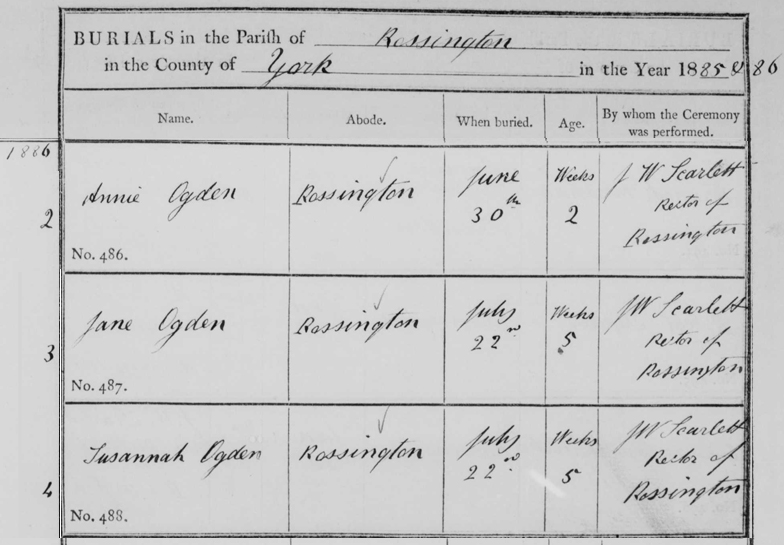 BURIALS in the Parish of Rossington
in the County of York in the Year 1885 & 86
Name. Abode. When buried. Age. By whom the Ceremony was performed.
1886
2 Annie Ogden Rossington June 30th Weeks 2 J W Scarlett Rector of Rossington
No. 486.
3 Jane Ogden Rossington July 22nd Weeks 5 JW Scarlett Rector of Rossington
No. 487.
4 Susannah Ogden Rossington July 22nd Weeks 5 JW Scarlett Rector of Rossington
No. 488.